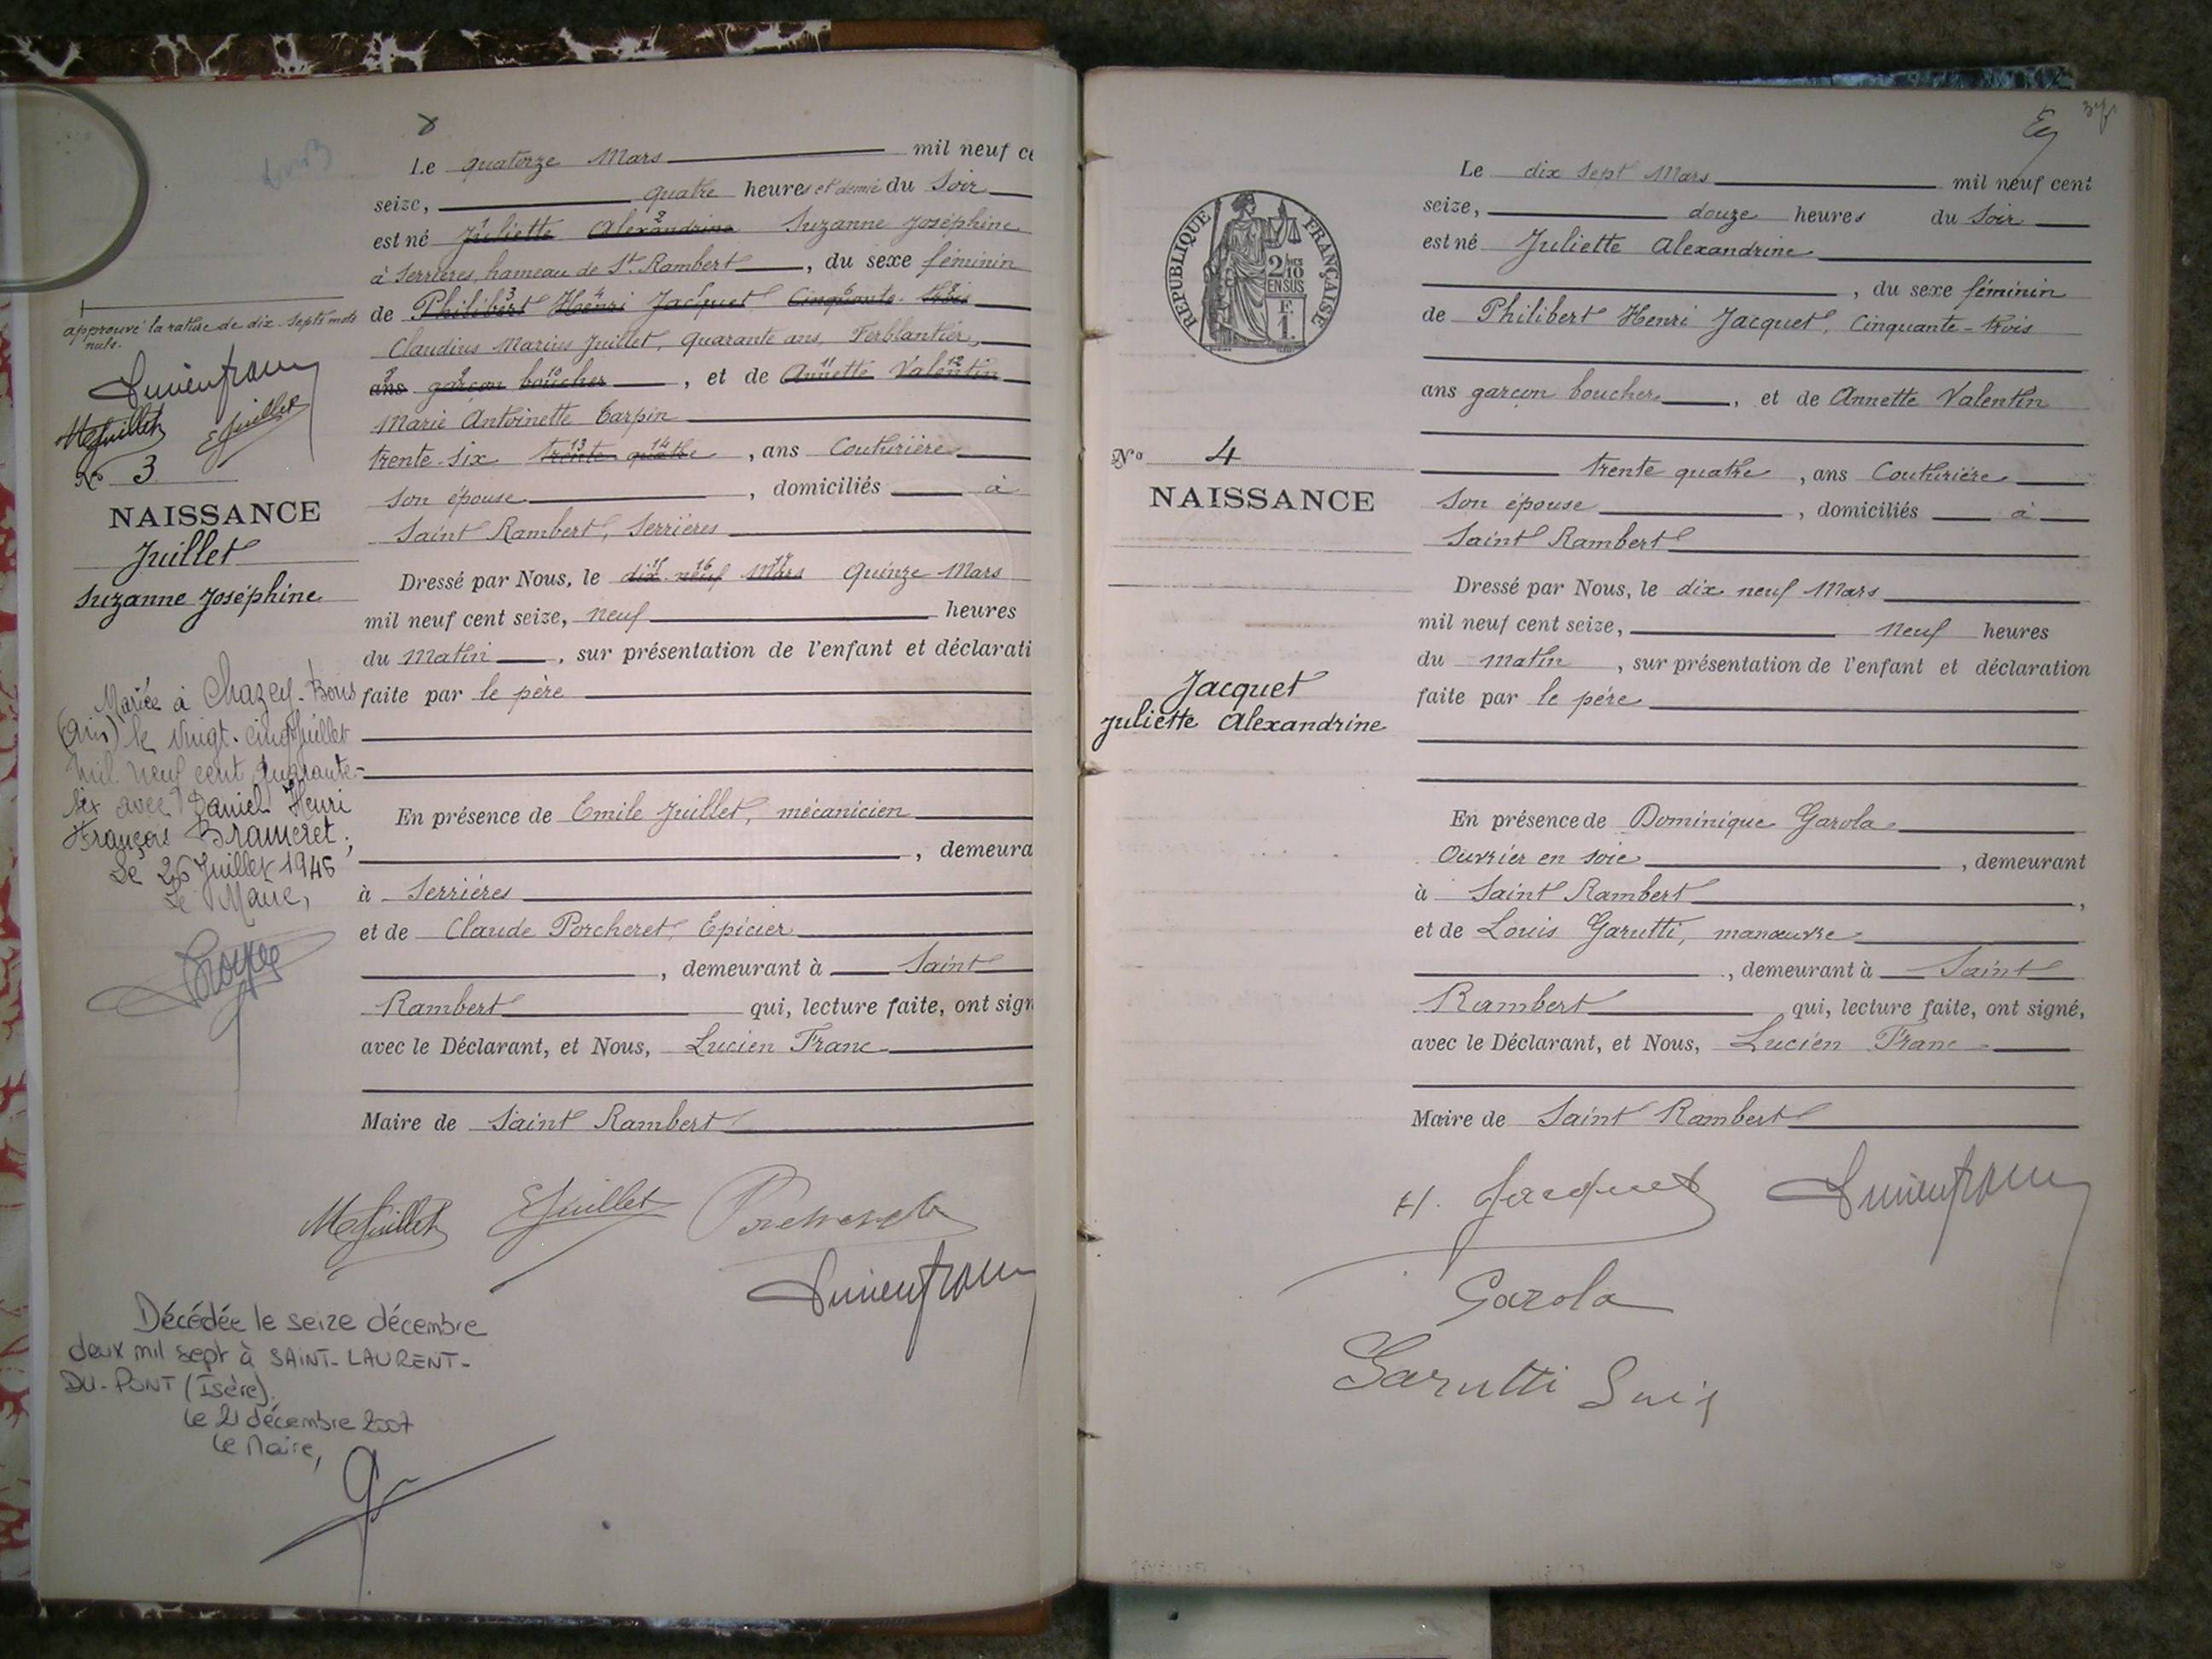 Le quatorze Mars mil neuf ce
seize, quatre heures et demie du Soir
est né Juliette Alexandrine Suzanne Joséphine
à Serrières, hameau de St. Rambert, du sexe féminin
de Philibert Henri Jacquet Cinquante-trois
Claudius Marius Juillet, quarante ans, Ferblantier,
ans garçon boucher, et de Annette Valentin
Marie Antoinette Carpin
trente-six trente quatre, ans Couturière
son épouse, domiciliés à
Saint Rambert, Serrières
Dressé par Nous, le dix neuf Mars Quinze Mars
mil neuf cent seize, neuf heures
du Matin, sur présentation de l'enfant et déclarati
faite par le père
En présence de Emile Juillet, mécanicien
, demeura
à Serrières
et de Claude Porcheret, Epicier
, demeurant à Saint
Rambert qui, lecture faite, ont sign
avec le Déclarant, et Nous, Lucien Franc
Maire de Saint Rambert
MJuillet EJuillet Porcheret
Lucienfranc
approuvé la rature de dix-septs mots
nuls.
Lucienfranc
MJuillet EJuillet
No 3
NAISSANCE
Juillet
Suzanne Joséphine
Mariée à Chazey-Bons
(Ain) le vingt-cinq Juillet
mil neuf cent quarante-
six avec Daniel Henri
François Brameret;
Le 26 Juillet 1946
Le Maire,
Décédée le seize décembre
deux mil sept à SAINT-LAURENT-
DU-PONT (Isère).
Le 21 décembre 2007
Le Maire,
RÉPUBLIQUE FRANÇAISE
2/10
EN SUS
F
1.
No 4
NAISSANCE
Jacquet
Juliette Alexandrine
Le dix sept Mars mil neuf cent
seize, douze heures du Soir
est né Juliette Alexandrine
, du sexe féminin
de Philibert Henri Jacquet, Cinquante-trois
ans garçon boucher, et de Annette Valentin
trente quatre, ans Couturière
son épouse, domiciliés à
Saint Rambert
Dressé par Nous, le dix neuf Mars
mil neuf cent seize, neuf heures
du matin, sur présentation de l'enfant et déclaration
faite par le père
En présence de Dominique Garola
Ouvrier en soie, demeurant
à Saint Rambert,
et de Louis Garutti, manœuvre
, demeurant à Saint
Rambert qui, lecture faite, ont signé,
avec le Déclarant, et Nous, Lucien Franc
Maire de Saint Rambert
H. Jacquet Lucienfranc
Garola
Garutti